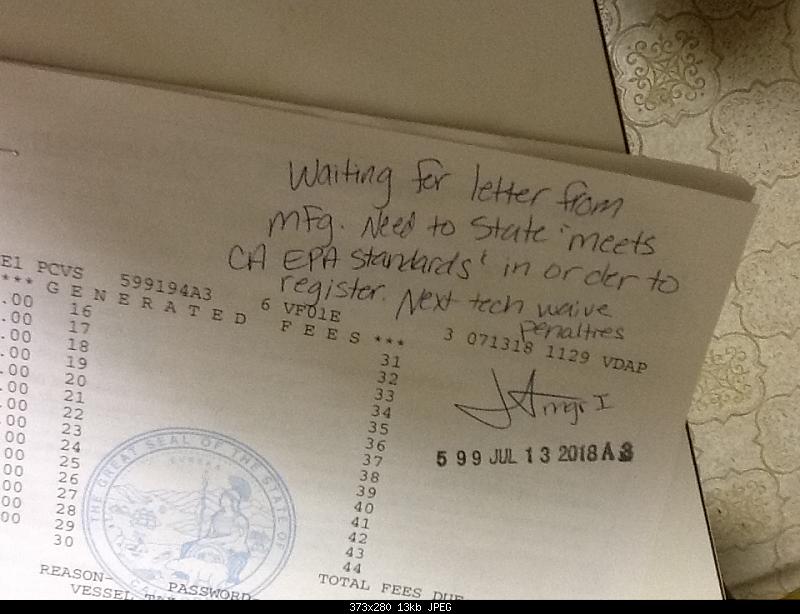 Waiting for letter from
mfg. Need to State "meets
CA EPA standards" in order to
register. Next tech waive
penalties
E1 PCVS 599194A3 6 VF01E 3 071318 1129 VDAP
*** GENERATED FEES ***
.00 16 31
.00 17 32
.00 18 33
.00 19 34
.00 20 35
.00 21 36
.00 22 37
.00 23 38
.00 24 39
.00 25 40
.00 26 41
.00 27 42
.00 28 43
.00 29 44
30
mgr I
599 JUL 13 2018 A3
THE GREAT SEAL OF THE STATE OF
EUREKA
REASON- PASSWORD
TOTAL FEES DUE
VESSEL
373x280 13kb JPEG